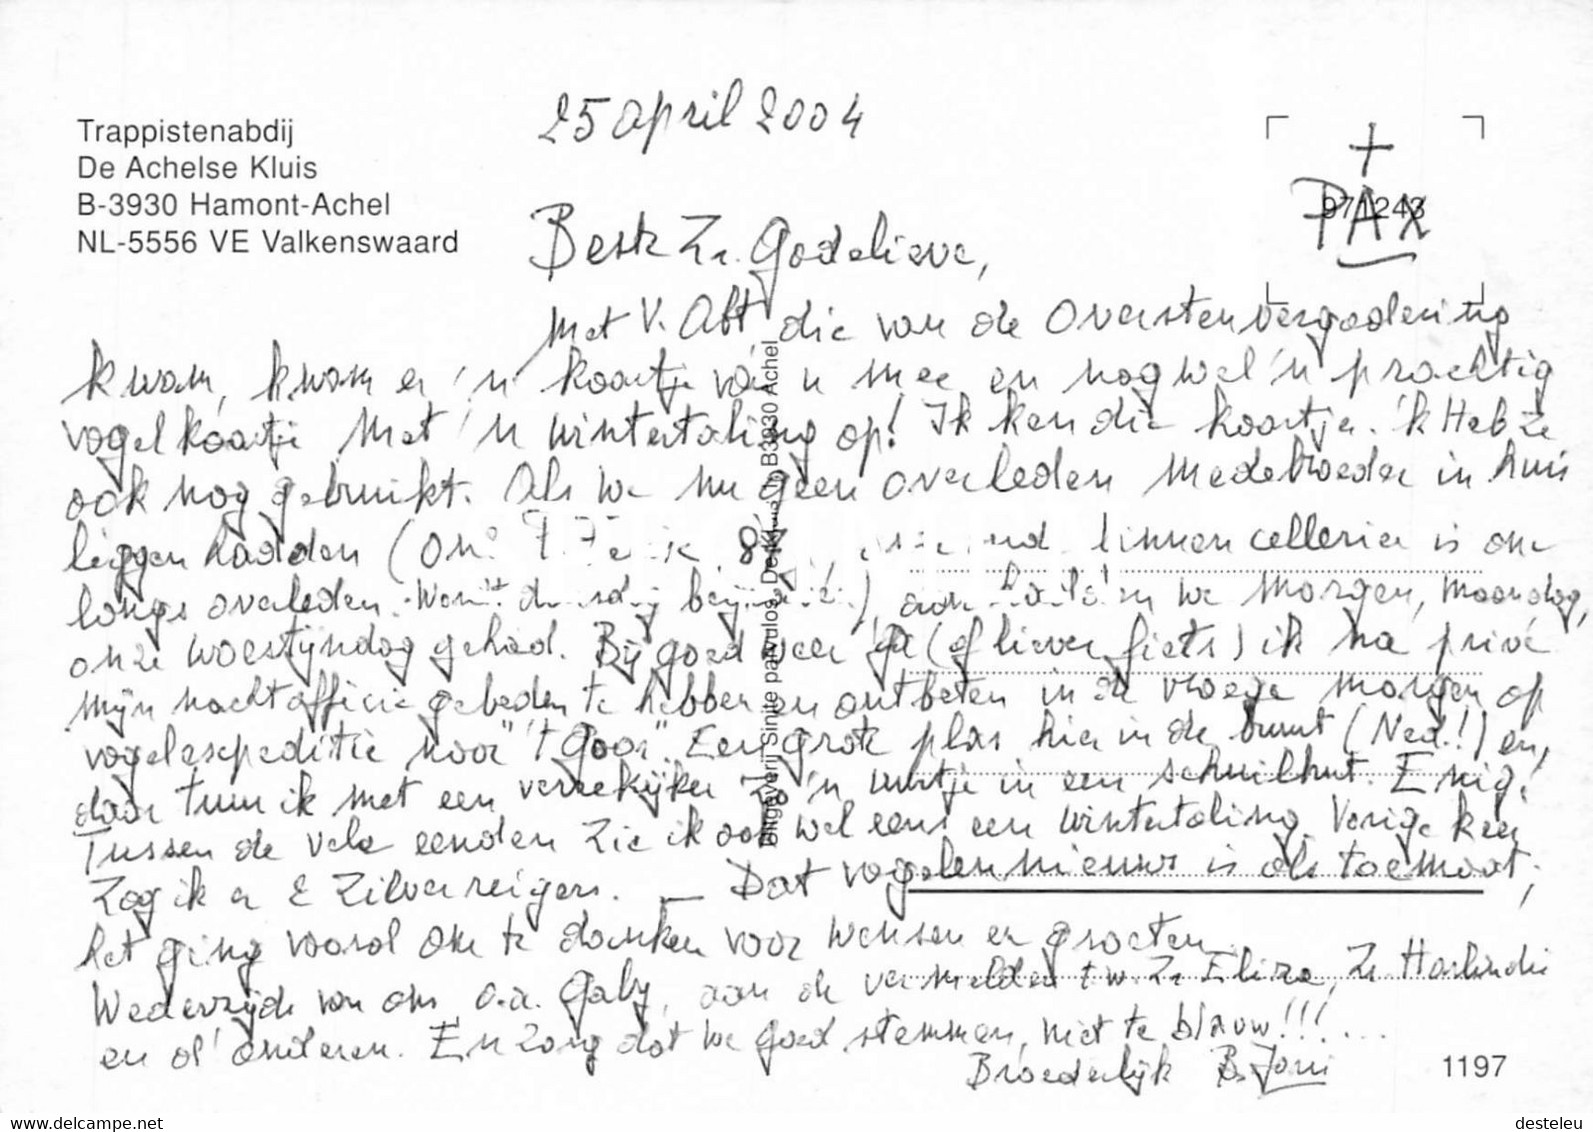 25 april 2004
Trappistenabdij
De Achelse Kluis
B-3930 Hamont-Achel
NL-5556 VE Valkenswaard
+
PAX
971243
Beste Zr. Godelieve,
Met V. Abt die van de Overstenvergadering
kwam, kwam er 'n kaartje van u mee en nog wel 'n prachtig
vogelkaartje met 'n wintertaling op! Ik ken die kaartje. 'k Heb ze
ook nog gebruikt. Als we nu geen overleden medebroeder in huis
liggen hadden (Onze linnencellerier is on-
langs overleden. Wordt begraven), dan hadden we morgen, maandag,
onze woestijndag gehad. Bij goed weer ga (of liever fiets) ik na privé
mijn nachtofficie gebeden te hebben en ontbeten in de vroege morgen op
vogelexpeditie naar "'t Goor". Een grote plas hier in de buurt (Ned.!) en
daar tuur ik met een verrekijker zo 'n uurtje in een schuilhut. Enig!
Tussen de vele eenden zie ik ook wel eens een wintertaling. Vorige keer
zag ik er 2 zilverreigers. — Dat vogelennieuws is als toemaat;
het ging vooral om te danken voor wensen en groeten.
Wederzijds van ons, o.a. Gaby, aan de vermelden t.w. Zr Eliza, Zr Harlindis
en d' anderen. En zorg dat we goed stemmen, niet te blauw!!!....
Broederlijk B. Joni
Uitgeverij Sinite parvulos De Kluis B3930 Achel
1197
delcampe.net
desteleu